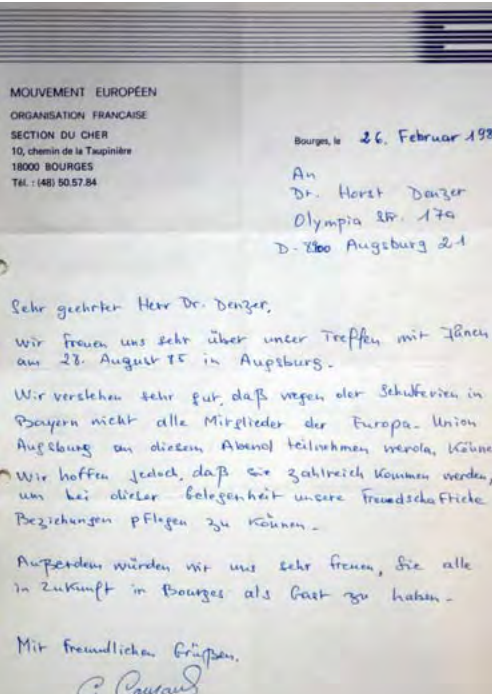 MOUVEMENT EUROPÉEN
ORGANISATION FRANÇAISE
SECTION DU CHER
10, chemin de la Taupinière
18000 BOURGES
Tél. : (48) 50.57.84
Bourges, le 26. Februar 198
An
Dr. Horst Denzer
Olympia Str. 17a
D-8900 Augsburg 21
Sehr geehrter Herr Dr. Denzer,
wir freuen uns sehr über unser Treffen mit Ihnen
am 28. August 85 in Augsburg.
Wir verstehen sehr gut, daß wegen der Schulferien in
Bayern nicht alle Mitglieder der Europa-Union
Augsburg an diesem Abend teilnehmen werden, Könne
Wir hoffen jedoch, daß sie zahlreich kommen werden,
um bei dieser Gelegenheit unsere Freundschaftliche
Beziehungen pflegen zu können.
Außerdem würden wir uns sehr freuen, Sie alle
in Zukunft in Bourges als Gast zu haben.
Mit freundlichen Grüßen.